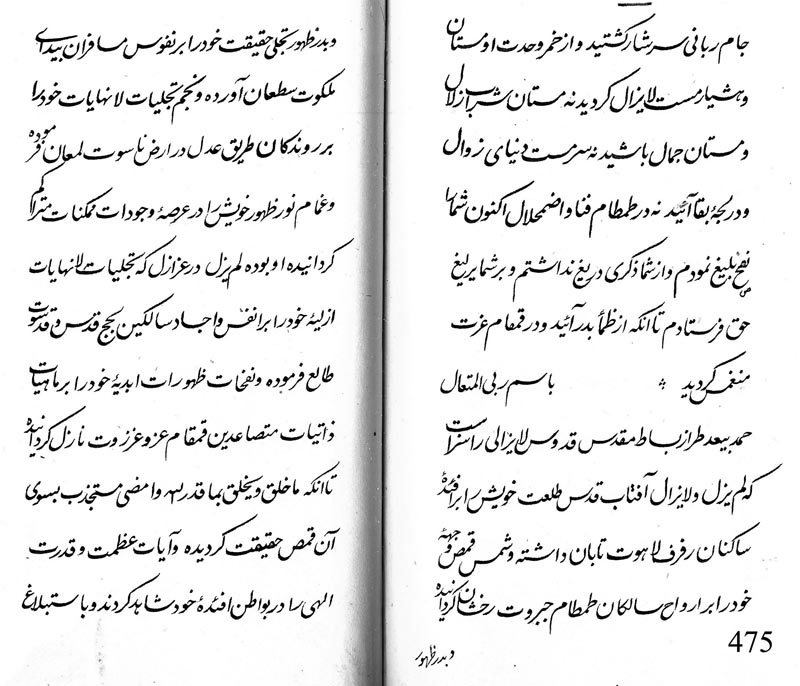 جام ربانی سرشار کشتید و از خمر وحدت او مستان
و هشیار مست لایزال کردید نه مستان شراب زلال
و مستان جمال باشید نه سرمست دنیای زوال
و در لجهٔ بقا آئید نه در طمطام فنا و اضمحلال اکنون شما را
نصح بلیغ نمودم و از شما ذکری دریغ نداشتم و بر شما یرلیغ
حق فرستادم تا آنکه از ظمأ بدر آئید و در قمقام عزت
منغمس کردید باسم ربی المتعال
حمد بیعد طراز بساط مقدس قدوس لایزالی را سزاست
که لم یزل ولایزال آفتاب قدس طلعت خویش را بر افئدهٔ
ساکنان رفرف لاهوت تابان داشته و شمس قمص وجههٔ
خود را بر ارواح سالکان طمطام جبروت رخشان کردانیده
و بدر ظهور
475
و بدر ظهور تجلی حقیقت خود را بر نفوس مسافران بیدای
ملکوت سطعان آورده و نجم تجلیات لانهایات خود را
بر روندکان طریق عدل در ارض ناسوت لمعان فرموده
و غمام نور ظهور خویش را در عرصهٔ وجودات ممکنات متراکم
کردانیده او بوده لم یزل در عز ازل که تجلیات لانهایات
ازلیهٔ خود را بر انفس و اجساد سالکین لجج قدس و قدوست
طالع فرموده و نفحات ظهورات ابدیهٔ خود را بر ماهیات
ذاتیات متصاعدین قمقام عز و عززوت نازل کردانیده
تا آنکه ما خلق و یخلق بما قدر لهه و امضی مستجذب بسوی
آن قمص حقیقت کردیده و آیات عظمت و قدرت
الهی را در بواطن افئدهٔ خود شاهد کردند و با ستبلاغ